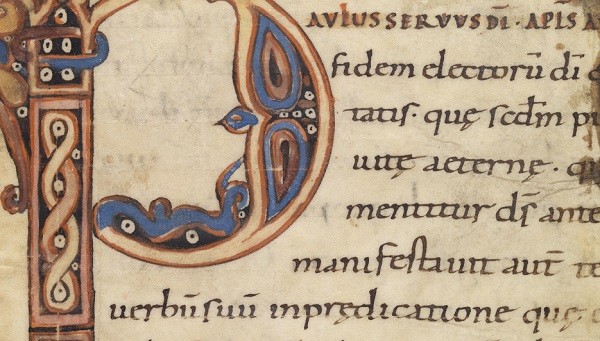 PAULUS SERVUS DĪ · APLS A
fidem electorū dī
tatis · quę scdm pi
uitę aeternę · q
mentitur d̄s ante
manifestauit aut̄ te
uerbū suū in prędicatione quę